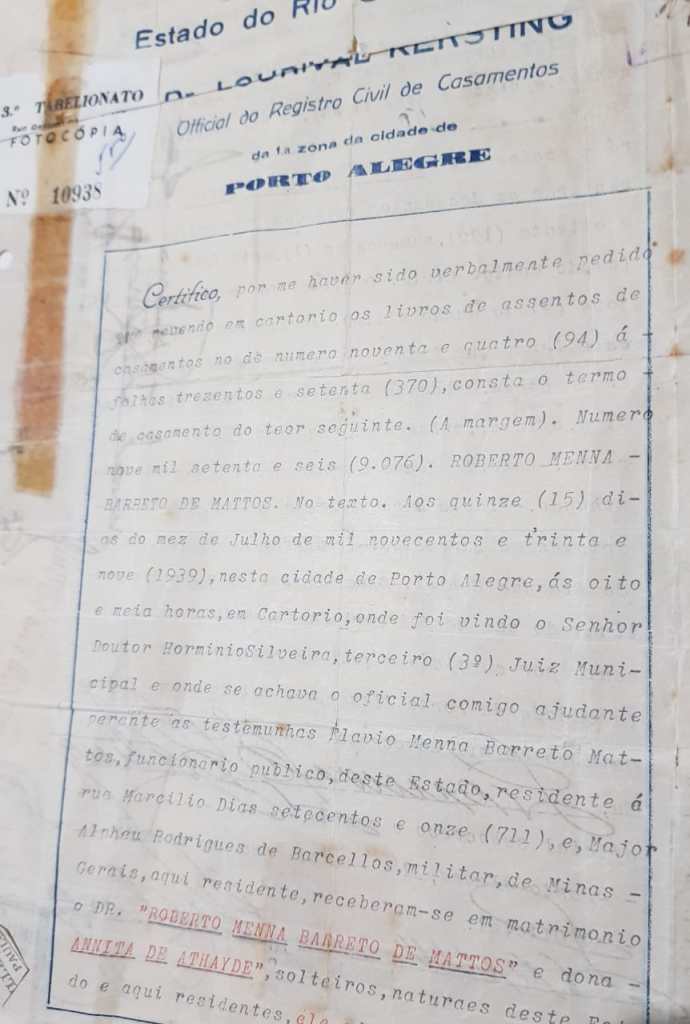 Estado do Rio
Dr. LOURIVAL KERSTING
3.º TABELIONATO
FOTOCÓPIA
Nº 10938
Official do Registro Civil de Casamentos
da 1a zona da cidade de
PORTO ALEGRE
Certifico, por me haver sido verbalmente pedido
que revendo em cartorio os livros de assentos de
casamentos no de numero noventa e quatro (94) á -
folhas trezentos e setenta (370),consta o termo -
de casamento do teor seguinte. (A margem). Numero
nove mil setenta e seis (9.076). ROBERTO MENNA -
BARRETO DE MATTOS. No texto. Aos quinze (15) di-
as do mez de Julho de mil novecentos e trinta e
nove (1939),nesta cidade de Porto Alegre,ás oito
e meia horas,em Cartorio,onde foi vindo o Senhor
Doutor HorminioSilveira,terceiro (3º) Juiz Muni-
cipal e onde se achava o oficial comigo ajudante
perante as testemunhas Flavio Menna Barreto Mat-
tos,funcionario publico,deste Estado,residente á
rua Marcilio Dias setecentos e onze (711),e,Major
Alpheu Rodrigues de Barcellos,militar,de Minas -
Gerais,aqui residente,receberam-se em matrimonio
o DR. "ROBERTO MENNA BARRETO DE MATTOS" e dona -
ANNITA DE ATHAYDE",solteiros,naturaes deste
do e aqui residentes,ele